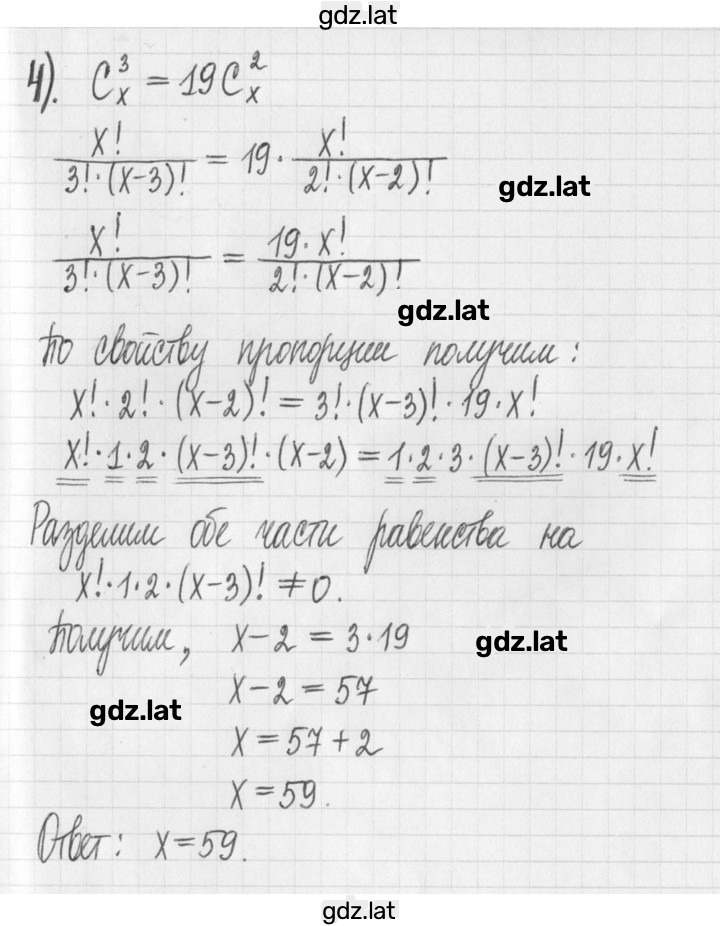 gdz.lat
4). C³ₓ = 19C²ₓ
x! / 3!·(x-3)! = 19· x! / 2!·(x-2)!
gdz.lat
x! / 3!·(x-3)! = 19·x! / 2!·(x-2)!
gdz.lat
По свойству пропорции получим:
x!·2!·(x-2)! = 3!·(x-3)!·19·x!
x!·1·2·(x-3)!·(x-2) = 1·2·3·(x-3)!·19·x!
Разделим обе части равенства на
x!·1·2·(x-3)! ≠ 0.
Получим, x-2 = 3·19
gdz.lat
x-2 = 57
gdz.lat
x = 57+2
x = 59.
Ответ: x = 59.
gdz.lat